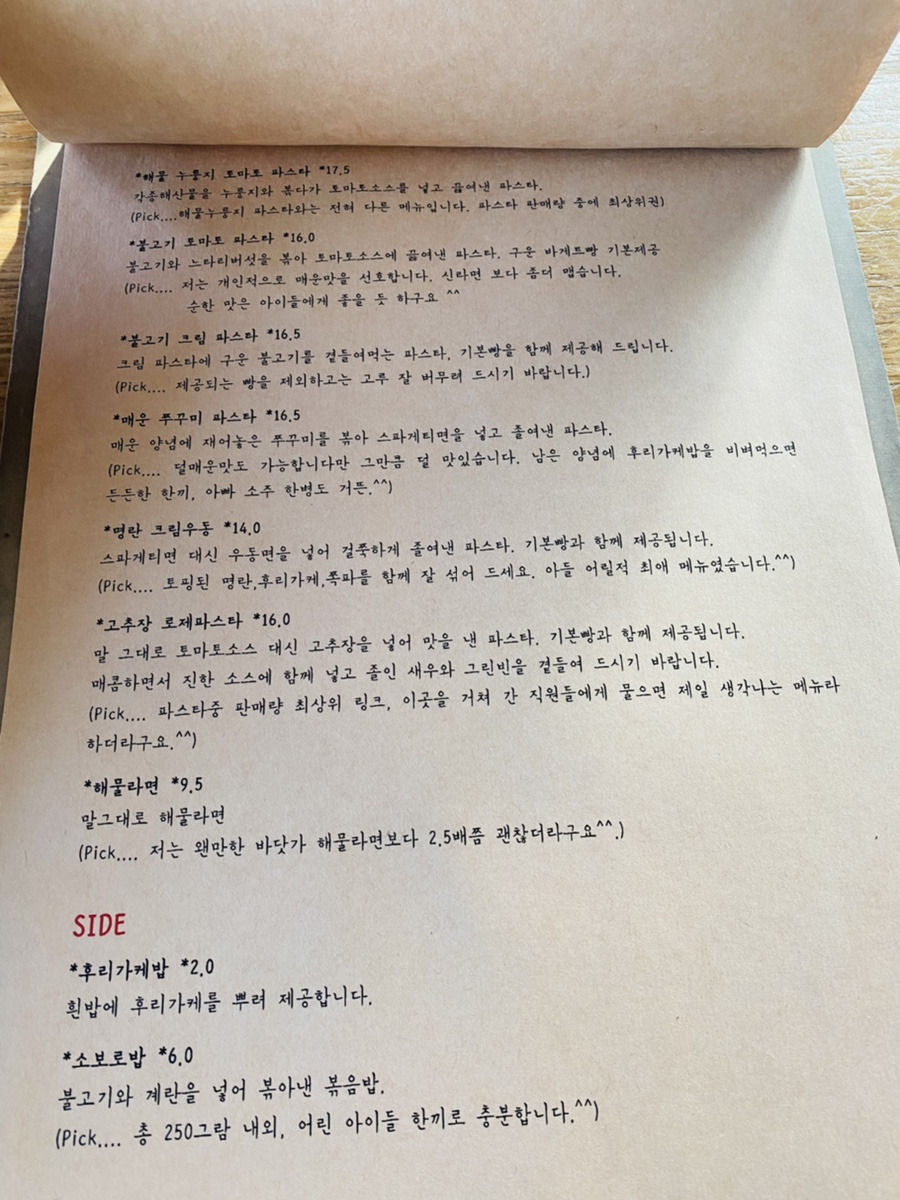 *해물 누룽지 토마토 파스타 *17.5
각종해산물을 누룽지와 볶다가 토마토소스를 넣고 끓여낸 파스타.
(Pick....해물누룽지 파스타와는 전혀 다른 메뉴입니다. 파스타 판매량 중에 최상위권)
*불고기 토마토 파스타 *16.0
불고기와 느타리버섯을 볶아 토마토소스에 끓여낸 파스타. 구운 바게트빵 기본제공
(Pick.... 저는 개인적으로 매운맛을 선호합니다. 신라면 보다 좀더 맵습니다.
순한 맛은 아이들에게 좋을 듯 하구요 ^^
*불고기 크림 파스타 *16.5
크림 파스타에 구운 불고기를 곁들여먹는 파스타. 기본빵을 함께 제공해 드립니다.
(Pick.... 제공되는 빵을 제외하고는 고루 잘 버무려 드시기 바랍니다.)
*매운 쭈꾸미 파스타 *16.5
매운 양념에 재어놓은 쭈꾸미를 볶아 스파게티면을 넣고 졸여낸 파스타.
(Pick.... 덜매운맛도 가능합니다만 그만큼 덜 맛있습니다. 남은 양념에 후리가케밥을 비벼먹으면
든든한 한끼, 아빠 소주 한병도 거뜬.^^)
*명란 크림우동 *14.0
스파게티면 대신 우동면을 넣어 걸쭉하게 졸여낸 파스타. 기본빵과 함께 제공됩니다.
(Pick.... 토핑된 명란,후리가케,쪽파를 함께 잘 섞어 드세요. 아들 어릴적 최애 메뉴였습니다.^^)
*고추장 로제파스타 *16.0
말 그대로 토마토소스 대신 고추장을 넣어 맛을 낸 파스타. 기본빵과 함께 제공됩니다.
매콤하면서 진한 소스에 함께 넣고 졸인 새우와 그린빈을 곁들여 드시기 바랍니다.
(Pick.... 파스타중 판매량 최상위 링크, 이곳을 거쳐 간 직원들에게 물으면 제일 생각나는 메뉴라
하더라구요.^^)
*해물라면 *9.5
말그대로 해물라면
(Pick.... 저는 왠만한 바닷가 해물라면보다 2.5배쯤 괜찮더라구요^^.)
SIDE
*후리가케밥 *2.0
흰밥에 후리가케를 뿌려 제공합니다.
*소보로밥 *6.0
불고기와 계란을 넣어 볶아낸 볶음밥.
(Pick.... 총 250그람 내외, 어린 아이들 한끼로 충분합니다.^^)